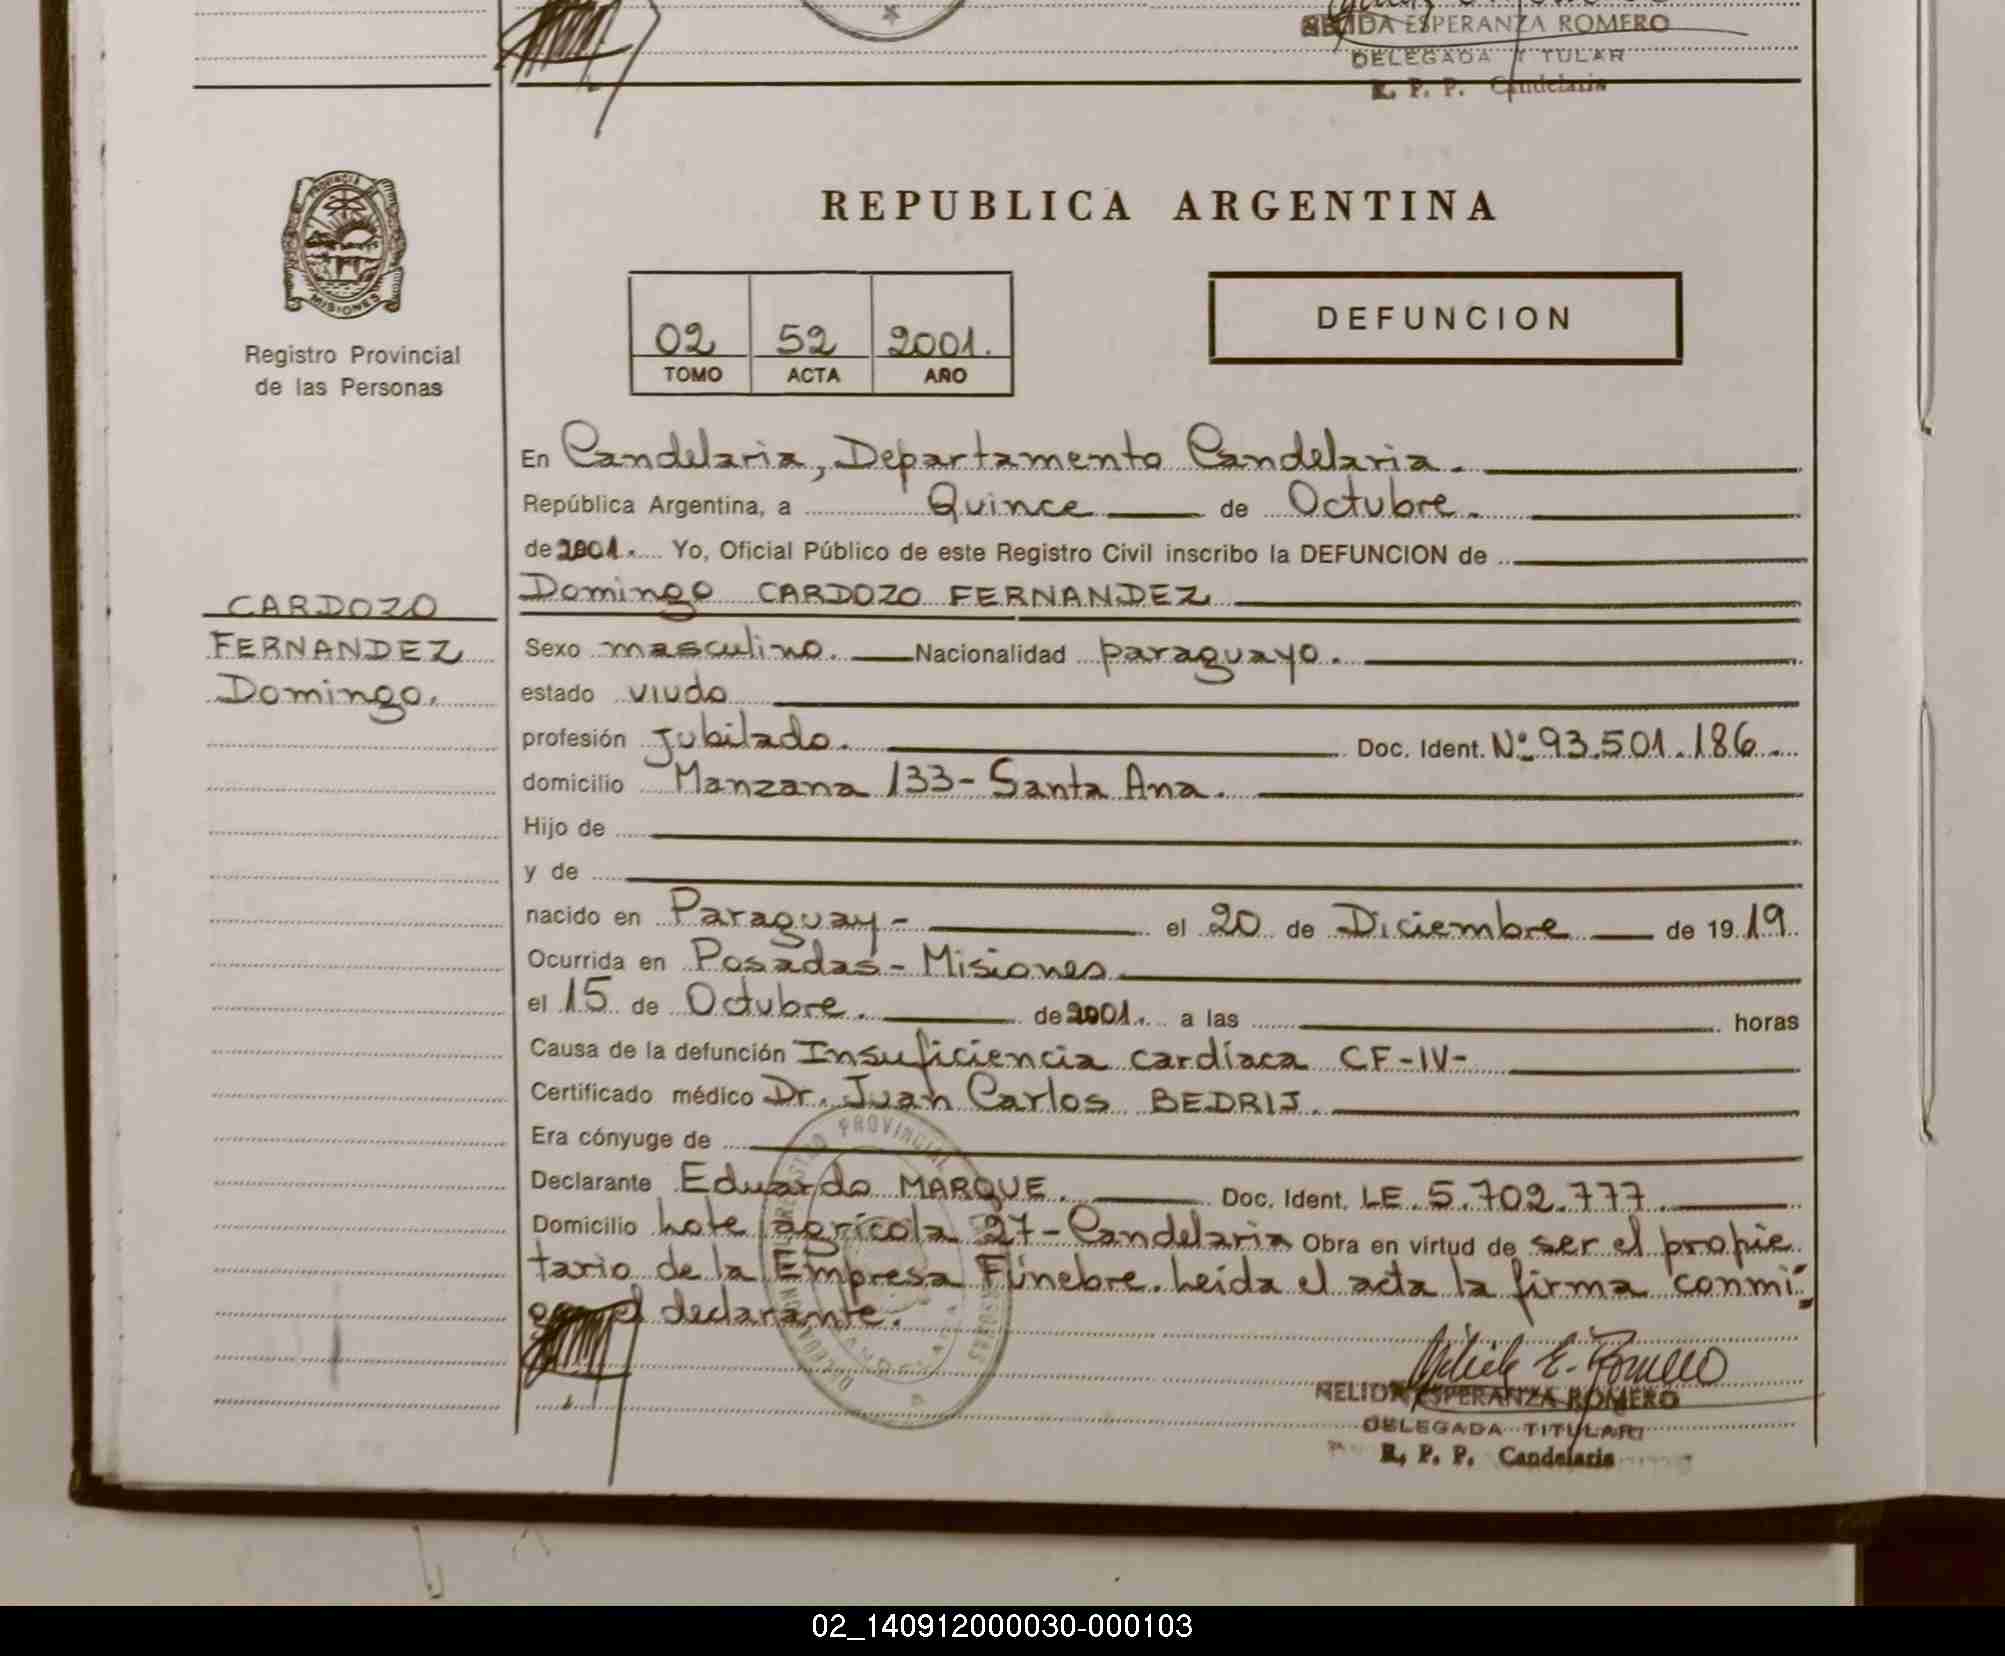 NELIDA ESPERANZA ROMERO
DELEGADA TITULAR
R. P. P. Candelaria
PROVINCIA
MISIONES
Registro Provincial
de las Personas
REPUBLICA ARGENTINA
02 52 2001.
TOMO ACTA AÑO
DEFUNCION
En Candelaria, Departamento Candelaria.
República Argentina, a Quince de Octubre.
de 2001. Yo, Oficial Público de este Registro Civil inscribo la DEFUNCION de
Domingo CARDOZO FERNANDEZ
CARDOZO
FERNANDEZ
Domingo.
Sexo masculino. Nacionalidad paraguayo.
estado viudo
profesión jubilado. Doc. Ident. Nº 93.501.186.
domicilio Manzana 133- Santa Ana.
Hijo de
y de
nacido en Paraguay- el 20 de Diciembre de 1919.
Ocurrida en Posadas- Misiones
el 15 de Octubre. de 2001. a las horas
Causa de la defunción Insuficiencia cardíaca CF-IV-
Certificado médico Dr. Juan Carlos BEDRIJ.
Era cónyuge de
Declarante Eduardo MARQUE. Doc. Ident. LE. 5.702.777
Domicilio Lote agrícola 27- Candelaria Obra en virtud de ser el propie
tario de la Empresa Fúnebre. Leida el acta la firma conmi-
go el declarante.
REGISTRO PROVINCIAL
Nelida E. Romero
NELIDA ESPERANZA ROMERO
DELEGADA TITULAR
R. P. P. Candelaria
02_140912000030-000103